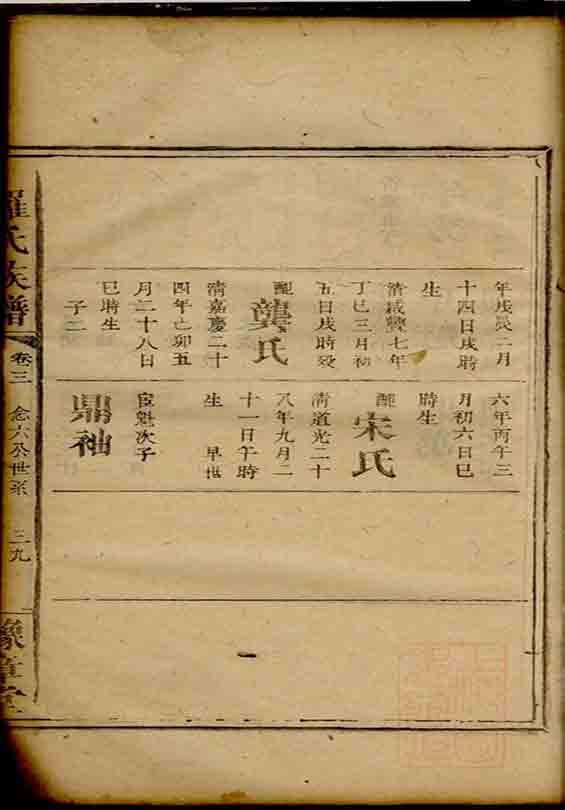 年戊辰二月
十四日戌時
生
清咸豐七年
丁巳三月初
五日戌時歿
配
龔氏
清嘉慶二十
四年己卯五
月二十八日
巳時生
子二
六年丙午三
月初六日巳
時生
配
宋氏
清道光二十
八年九月二
十一日午時
生 早世
魁次子
鼎袖
羅氏族譜
卷三
念六公世系
三九
豫章堂